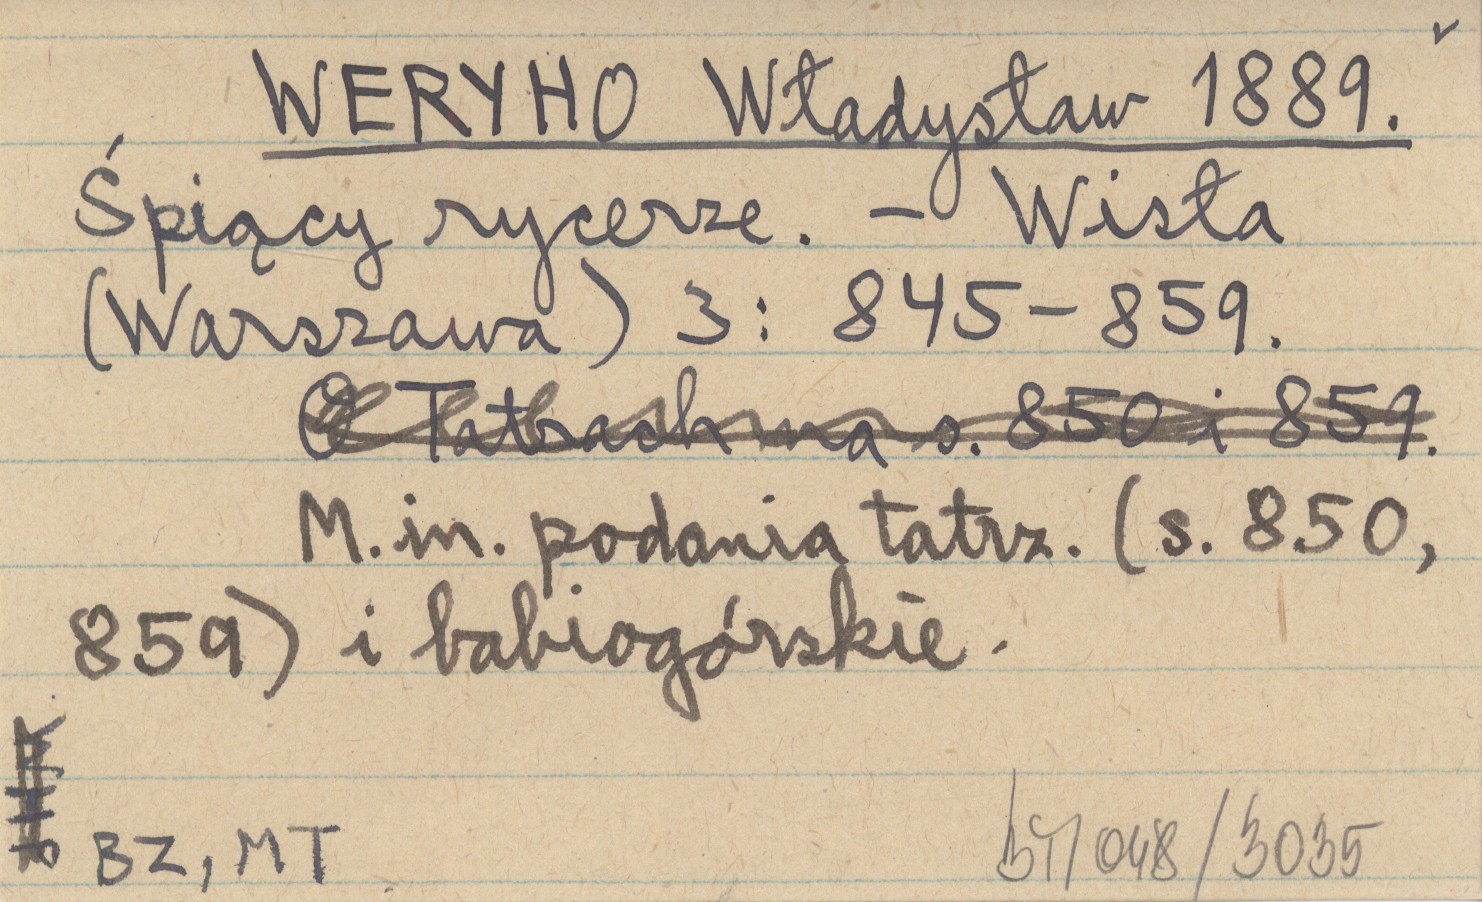 WERYHO Władysław 1889.
Śpiący rycerze. – Wisła
(Warszawa) 3: 845–859.
O Tatrach na s. 850 i 859.
M. in. podania tatrz. (s. 850,
859) i babiogórskie.
BZ, MT
048/3035